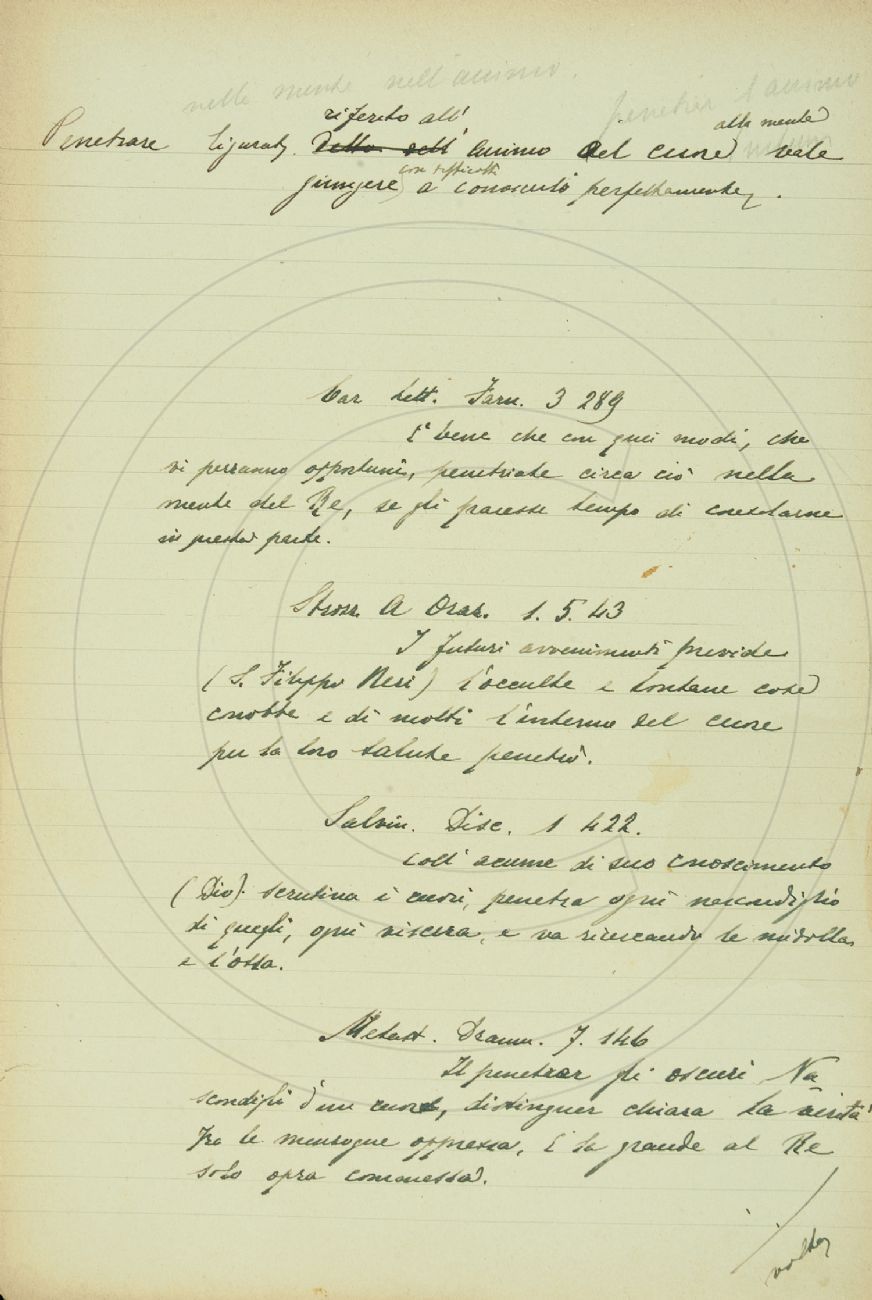 nella mente nell'animo.
penetrar l'animo
riferito all' alla mente
Penetrare Figurat. Detto dell' animo del cuore vale
con difficoltà
giungere a conoscerlo perfettamente.
Car. Lett. Farn. 3 289
È bene che con quei modi, che
vi parranno opportuni, penetriate circa ciò nella
mente del Re, se gli paresse tempo di
in questa parte.
Strozz. A Oraz. 1. 5. 43
I futuri avvenimenti previde
(S. Filippo Neri) l'occulte e lontane cose
conobbe e di molti l'interno del cuore
per la loro salute penetrò.
Salvin. Disc. 1 422.
Coll' acume di suo conoscimento
(Dio) scrutina i cuori, penetra ogni nascondiglio
di quegli, ogni viscera, e va ricercando le midolla
e l'ossa.
Metast. Dramm. 7. 146
Il penetrar gli oscuri Na
scondigli d'un cuore, distinguer chiara la verità
fra le menzogne oppressa, È la grande al Re
solo opra commessa.
volta